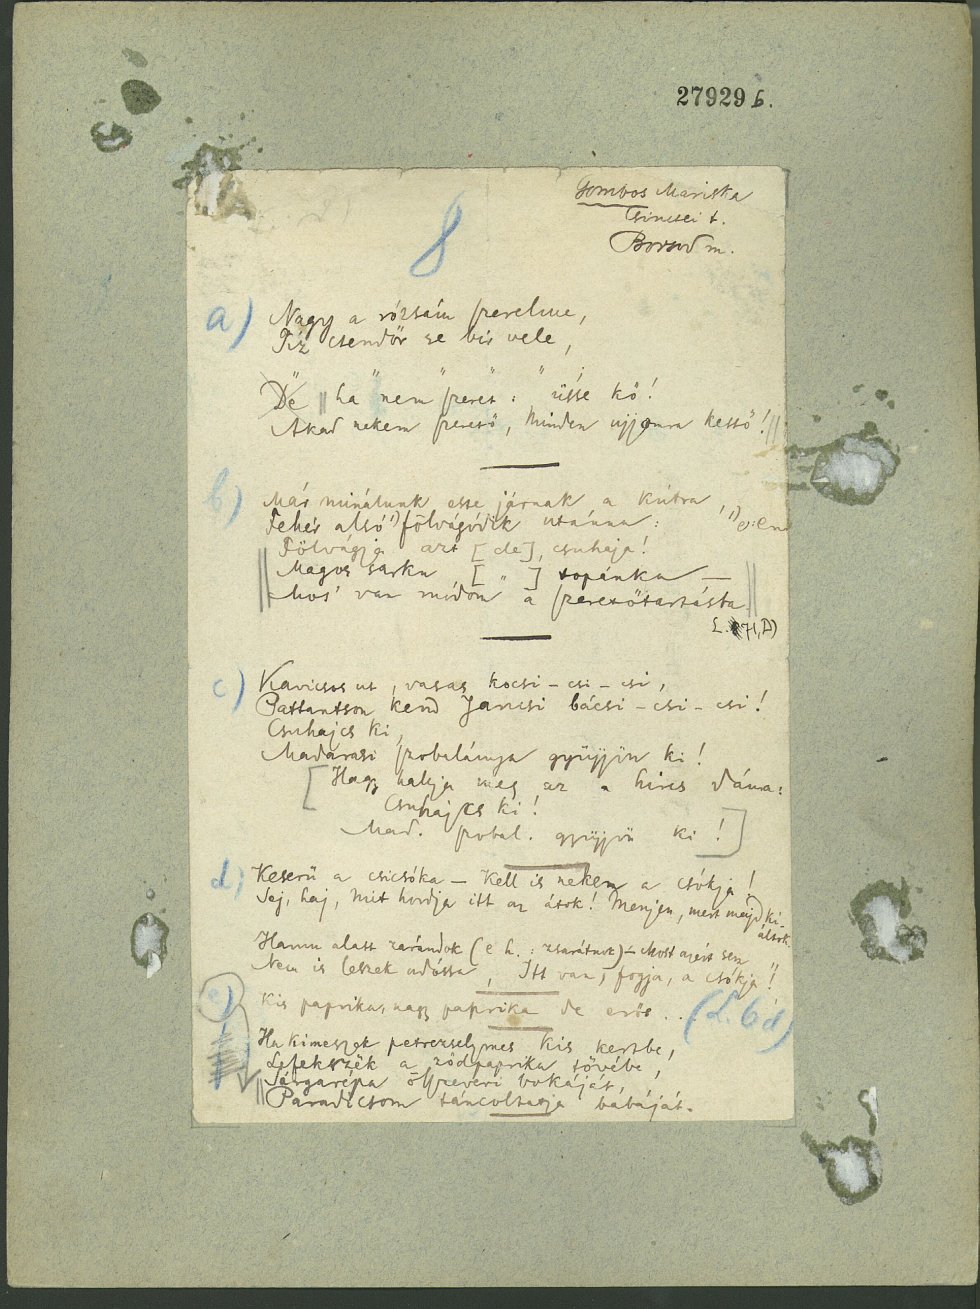 27929 b.
Gombos Mariska
Csincsei t.
Borsod m.
8
a) Nagy a rózsám szerelme,
Tíz csendőr se bír vele,
De ha nem szeret : üsse kő!
Akad nekem szerető, minden ujjamra kettő!
b) Már minálunk esse járnak a kútra
Fehér alsó 1) fölvágódik utánna :
Fölvágja azt [de], csuhaja!
Magos sarku [ " ] topánka —
Mos' van módom a szeretőtartásba.
L. 71, D)
c) Kavicsos ut, vasas kocsi - csi - csi,
Pattantson kend Jancsi bácsi - csi - csi!
Csuhajcs ki,
Madarasi szobalánya gyüjjön ki!
[Hagy hallja meg az a hires dáma:
Csuhajcs ki!
Mad. szobal. gyüjjön ki!]
d) Keserü a csicsóka — Kell is nekem a csókja!
Jej, haj, mit hordja itt az átok! Menjen, mert majd ki-
áltok.
Hamu alatt zarándok (e h. : zsarátnok) — Most azért sem
Nem is leszek adóssa, Itt van, fogja, a csókja!
e) Kis paprika, nagy paprika de erős . . (L. 6d)
Ha kimegyek petrezselymes kis kertbe,
Lefekszek a zödpaprika tövébe,
Sárgarépa összeveri bokáját,
Paradicsom táncoltatja babáját.